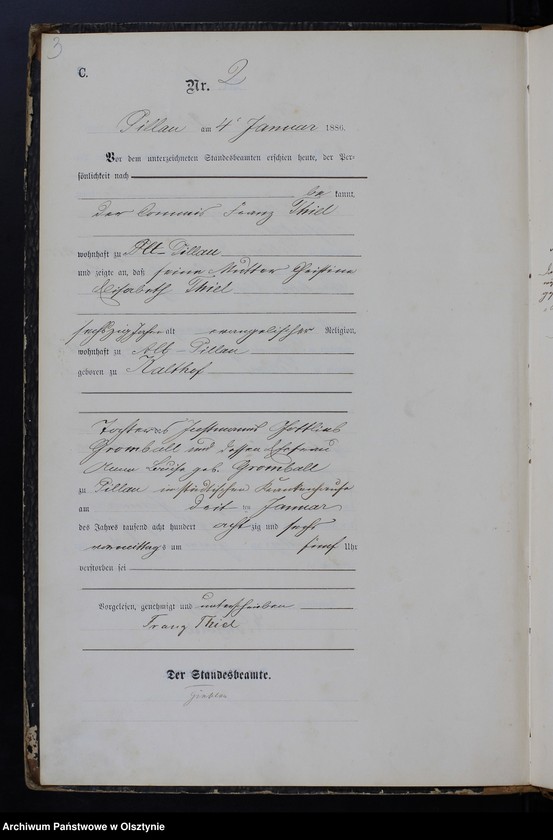 3
C.
Nr. 2
Pillau am 4 Januar 1886.
Vor dem unterzeichneten Standesbeamten erschien heute, der Per-
sönlichkeit nach
be kannt,
der Commis Franz Thiel
wohnhaft zu Alt-Pillau
und zeigte an, daß seine Mutter
Elisabeth Thiel
sechszig Jahre alt evangelischer Religion,
wohnhaft zu Alt-Pillau
geboren zu Kalthof
Tochter des Gottlieb
Gromball und dessen Ehefrau
Louise geb. Gromball
zu Pillau im städtischen Krankenhause
am drit ten Januar
des Jahres tausend acht hundert acht zig und sechs
vormittags um fünf Uhr
verstorben sei
Vorgelesen, genehmigt und unterschrieben
Franz Thiel
Der Standesbeamte.
Archiwum Państwowe w Olsztynie